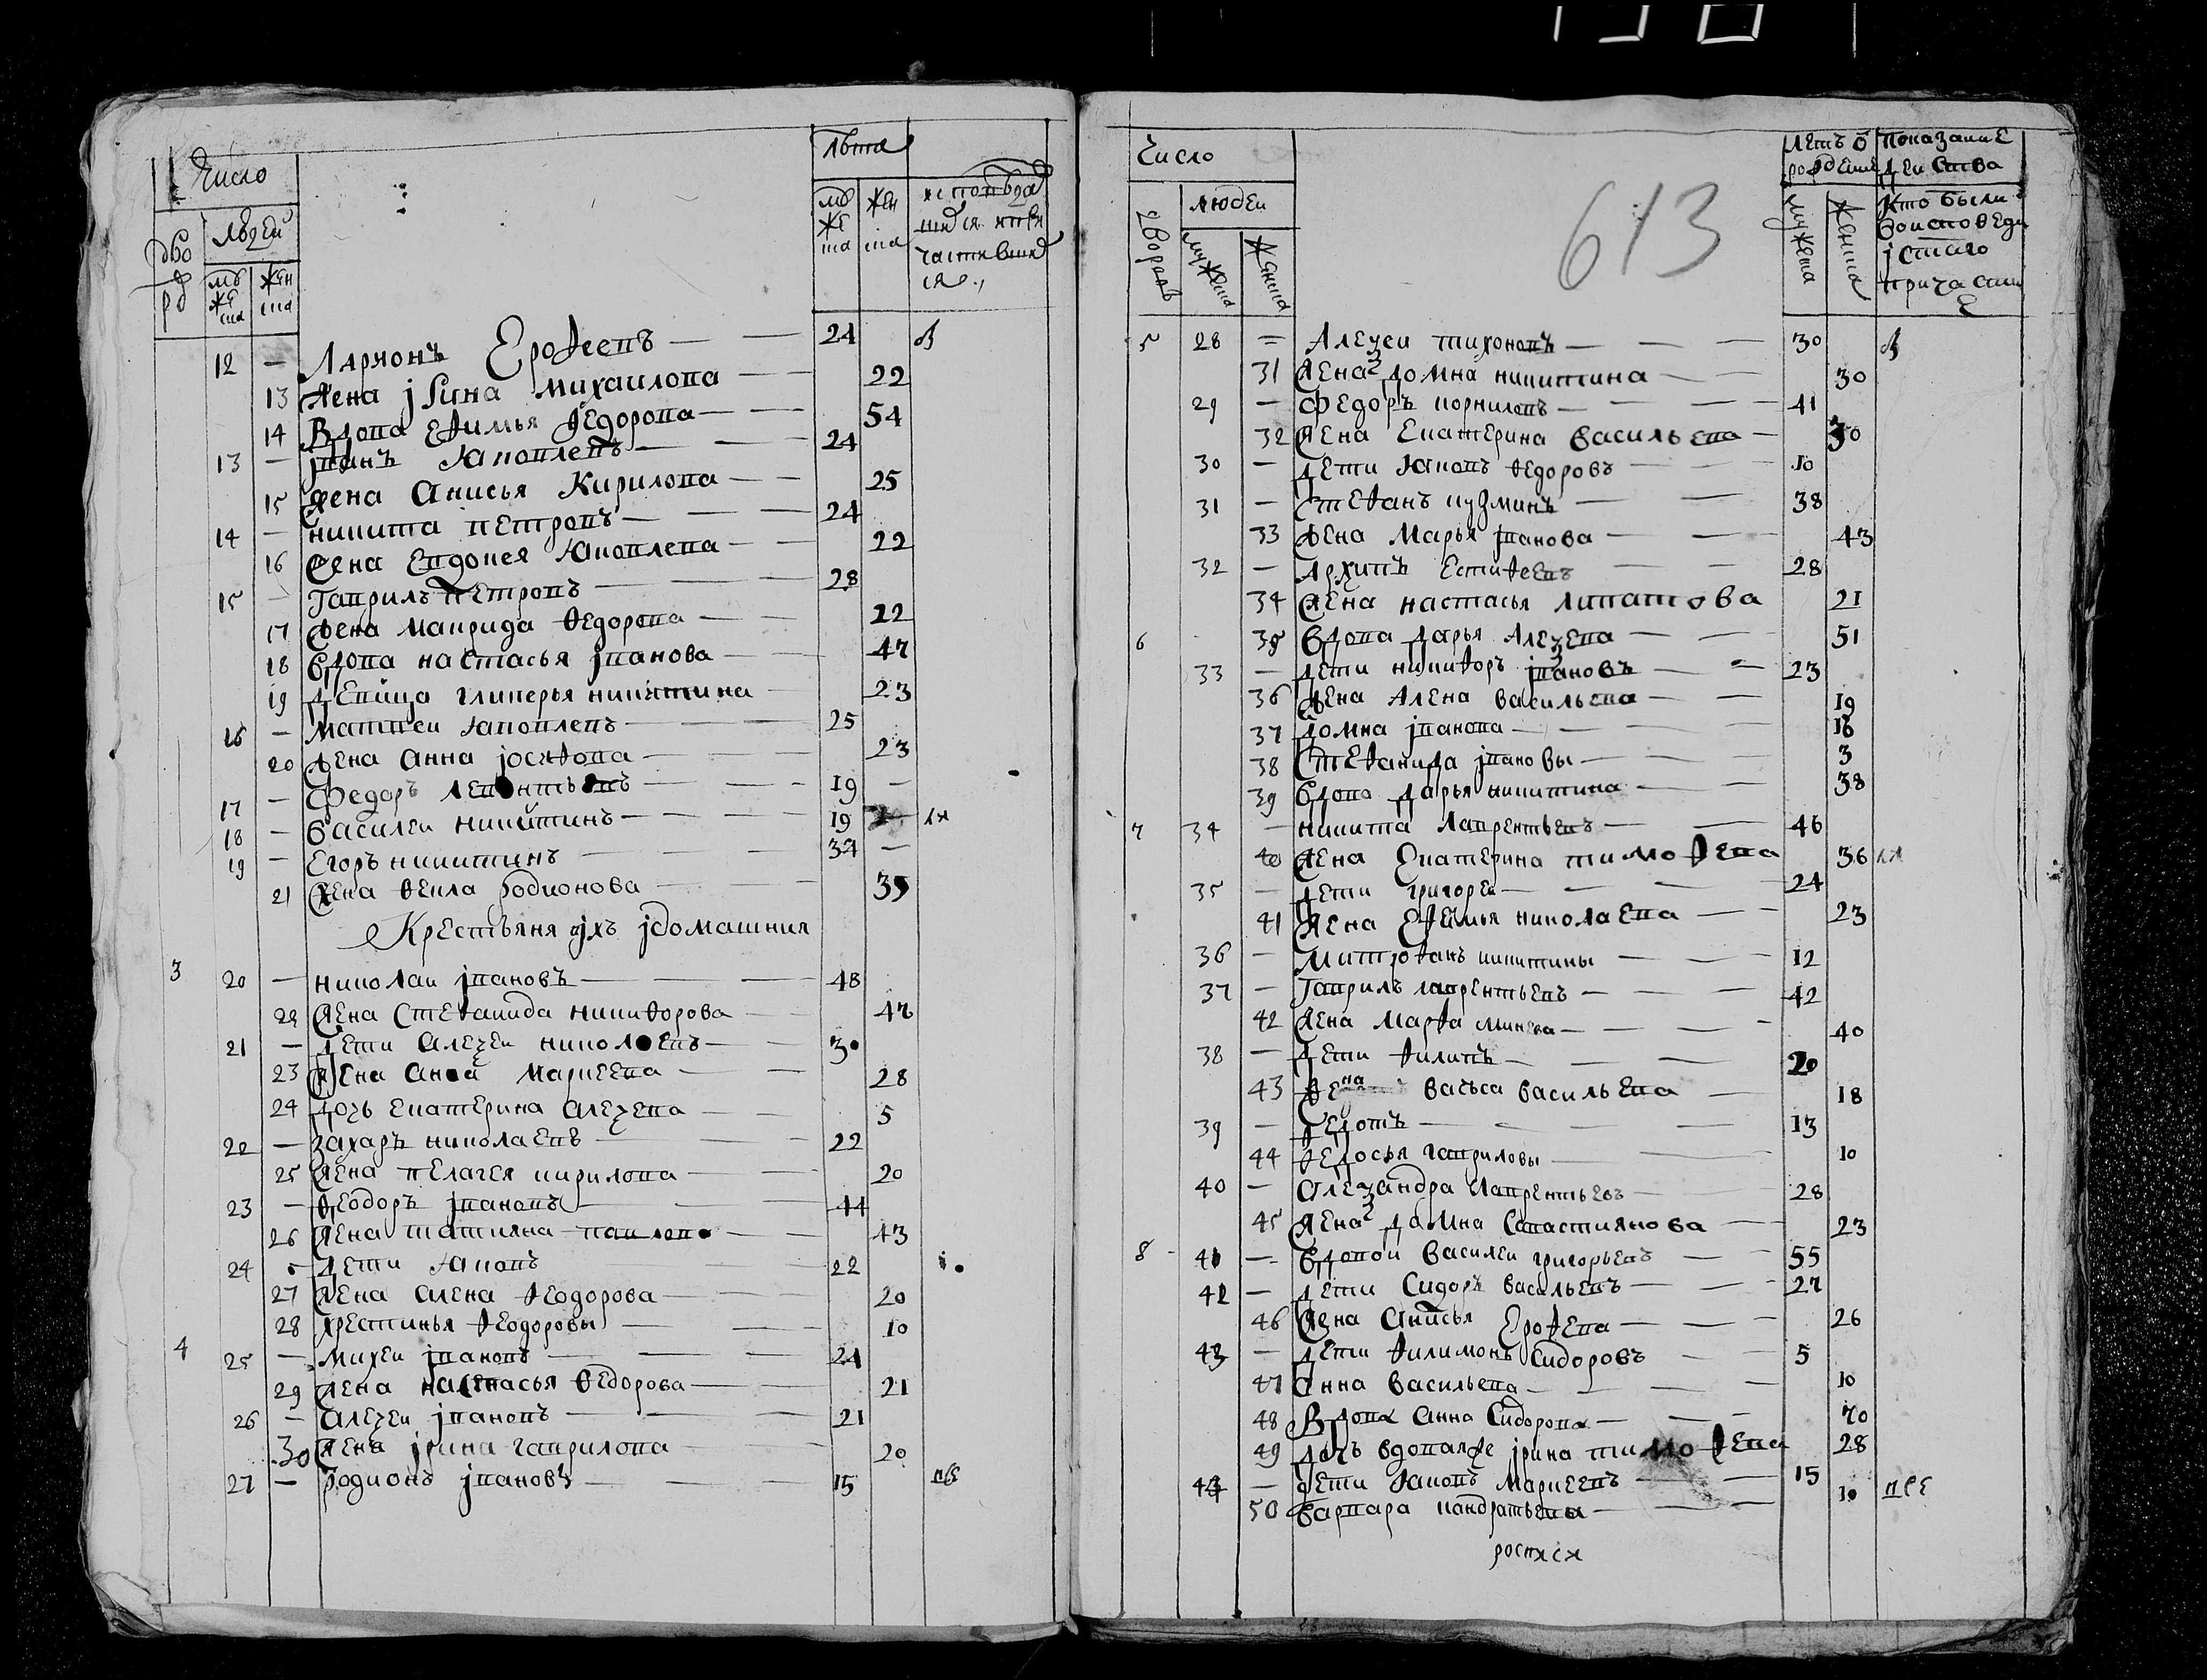 Число
Людей
Дво
ро
му
же
ска
жен
ска
Лѣта
му
же
ска
жен
ска
исповѣда
шияся
частивши
яся
12 — Ларионъ Ерофеевъ — 24
13 Жена Ирина Михаилова — 22
14 Вдова Ефимья Федорова — 54
13 — Иванъ Яковлевъ — 24
15 Жена Анисья Кирилова — 25
14 — Никита Петровъ — 24
16 Жена Евдокея Яковлева — 22
15 — Гаврилъ Петровъ — 28
17 Жена Маврида Федорова — 22
18 Вдова Настасья Иванова — 47
19 Девица Гликерья Никитина — 23
16 — Матвеи Яковлевъ — 25
20 Жена Анна Иосифова — 23
17 — Федоръ Леонтьевъ — 19 —
18 — Василеи Никитинъ — 19
19 — Егоръ Никитинъ — 37 —
21 Жена Фекла Родионова — 35
Крестьяня ихъ и домашния
3 20 — Николаи Ивановъ — 48
22 Жена Стефанида Никифорова — 47
21 — Дети Алеѯеи Николаевъ — 30
23 Жена Анна Маркеева — 28
24 Дочь Екатерина Алеѯева — 5
22 — Захаръ Николаевъ — 22
25 Жена Пелагея Кирилова — 20
23 — Феодоръ Ивановъ — 44
26 Жена Татияна Павлова — 43
24 Дети Яковъ — 22
27 Жена Алена Феодорова — 20
28 Хрестинья Феодоровы — 10
4 25 — Михеи Ивановъ — 24
29 Жена Настасья Федорова — 21
26 — Алеѯеи Ивановъ — 21
30 Жена Ирина Гаврилова — 20
27 — Родионъ Ивановъ — 15
Число
Дворовъ
людеи
мужеска
женска
613
Летъ о
рождени
мужеска
женска
Показание
деиства
Кто были
во исповеди
и стаго
причасти
е
5 28 = Алеѯеи Тихоновъ — 30
31 Жена Домна Никитина — 30
29 — Федоръ Корниловъ — 41
32 Жена Екатерина Васильева — 30
30 — Дети Яковъ Федоровъ — 10
31 — Стефанъ Кузминъ — 38
33 Жена Марья Иванова — 43
32 — Архипъ Естифеевъ — 28
34 Жена Настасья Липатова 21
6 35 Вдова Дарья Алеѯева — 51
33 — Дети Никифоръ Ивановъ — 23
36 Жена Алена Васильева — 19
37 Домна Иванова — 16
38 Стефанида Ивановы — 3
39 Вдова Дарья Никитина — 38
7 34 — Никита Лаврентьевъ — 46
40 Жена Екатерина Тимофева 36
35 — Дети Григореи — 24
41 Жена Ефимья Николаева — 23
36 — Митрофанъ Никитины — 12
37 — Гаврилъ Лаврентьевъ — 42
42 Жена Марфа Минева — 40
38 — Дети Филипъ — 20
43 Жена Васъса Васильева — 18
39 — Федотъ — 13
44 Федосья Гавриловы — 10
40 — Алеѯандра Лаврентьевъ — 28
45 Жена Домна Савастиянова — 23
8 41 — Вдовои Василеи Григорьевъ — 55
42 — Дети Сидоръ Васильевъ — 27
46 Жена Анисья Ерофева — 26
43 — Дети Филимонъ Сидоровъ — 5
47 Анна Васильева — 10
48 Вдова Анна Сидорова — 70
49 Дочь вдова же Ирина Тимофева 28
44 — Дети Яковъ Маркеевъ — 15
50 Варвара Кондратьевы — 10
роспися